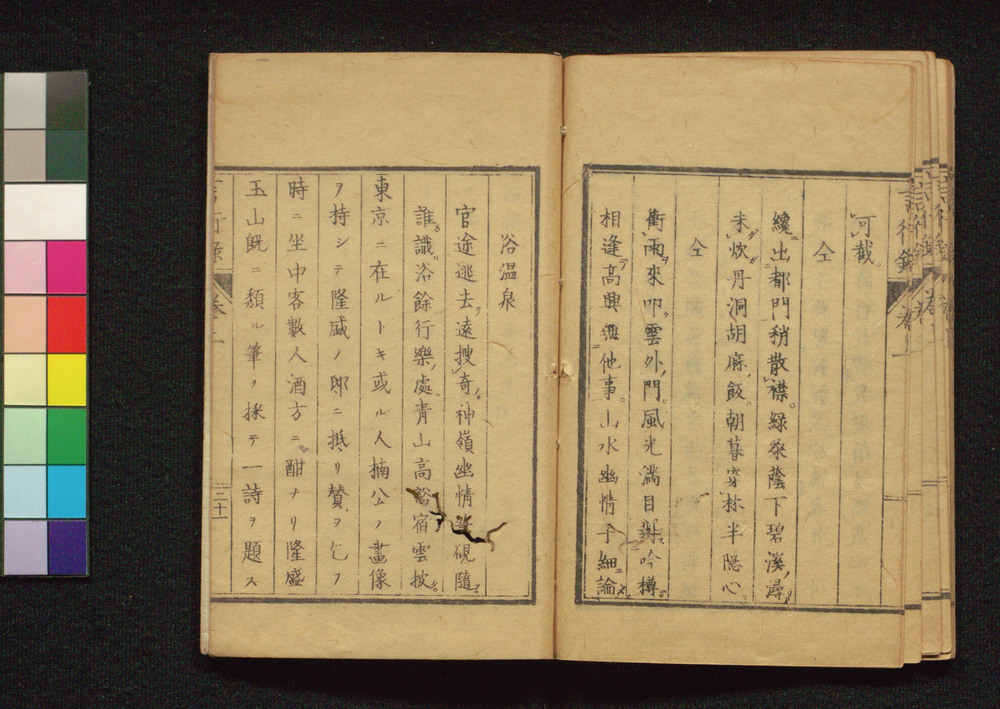 可截
仝
纔出都門稍散襟綠桒蔭下碧溪潯
未炊丹洞胡麻飯朝暮穿林半隠心
仝
衝雨來叩雲外門風光満目對吟樽
相逢高興無他事山水幽情子細論
浴温泉
官途逃去遠搜奇神嶺幽情筆硯隨
誰識浴餘行樂處青山高 宿雲披
東京ニ在ルトキ或ル人楠公ノ畫像
ヲ持シテ隆盛ノ邸ニ抵リ賛ヲ乞フ
時ニ坐中客數人酒方ニ酣ナリ隆盛
玉山既ニ頽ル筆ヲ採テ一詩ヲ題ス
言行錄
三十一